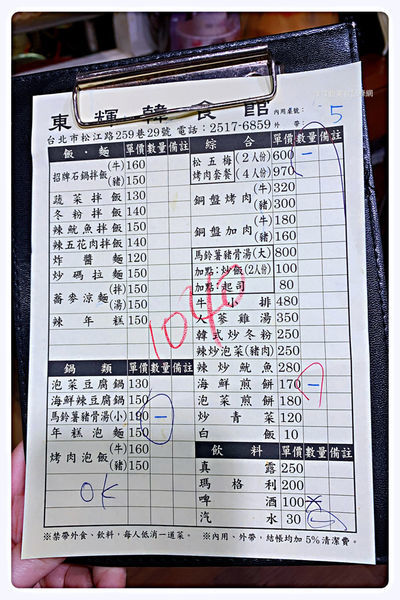 東輝韓食館 內用桌號： 5
外 帶：
台北市松江路259巷29號 電話：2517-6859
飯・麵 單價 數量 備註
招牌石鍋拌飯 (牛) 160
(豬) 150
蔬菜拌飯 130
冬粉拌飯 140
辣魷魚拌飯 150
辣五花肉拌飯 140
炸醬麵 120
炒碼拉麵 150
蕎麥涼麵 (拌) 150
(湯) 150
辣年糕 150
鍋類 單價 數量 備註
泡菜豆腐鍋 130
海鮮辣豆腐鍋 150
馬鈴薯豬骨湯(小) 190 一
年糕泡麵 150
烤肉泡飯 (牛) 160
(豬) 150
OK
綜合 單價 數量 備註
松五梅 (2人份) 600 一
烤肉套餐 (4人份) 970
銅盤烤肉 (牛) 320
(豬) 300
銅盤加肉 (牛) 180
(豬) 160
馬鈴薯豬骨湯(大) 800
加點：炒飯(2人份) 100
加點：起司 80
牛小排 480
人蔘雞湯 350
韓式炒冬粉 250
辣炒泡菜(豬肉) 250
辣炒魷魚 280
海鮮煎餅 170 一
泡菜煎餅 180
炒青菜 120
白飯 10
飲料 單價 數量 備註
真露 250
瑪格利 200
啤酒 100
汽水 30
1040
※禁帶外食、飲料，每人低消一道菜。 ※內用、外帶，結帳均加5%清潔費。